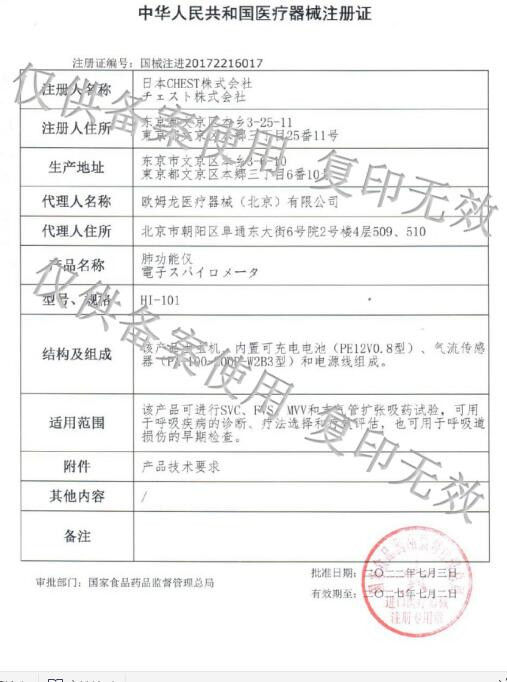 中华人民共和国医疗器械注册证
注册证编号：国械注进20172216017
注册人名称
日本CHEST株式会社
チェスト株式会社
注册人住所
东京都文京区本乡3-25-11
東京都文京区本郷三丁目25番11号
生产地址
东京市文京区本乡3-6-10
東京都文京区本郷三丁目6番10号
代理人名称
欧姆龙医疗器械（北京）有限公司
代理人住所
北京市朝阳区阜通东大街6号院2号楼4层509、510
产品名称
肺功能仪
電子スパイロメータ
型号、规格
HI-101
结构及组成
该产品由主机、内置可充电电池（PE12V0.8型）、气流传感
器（PA-100-W2B3型）和电源线组成。
适用范围
该产品可进行SVC、FVS、MVV和支气管扩张吸药试验，可用
于呼吸疾病的诊断、疗法选择和疗效评估，也可用于呼吸道
损伤的早期检查。
附件
产品技术要求
其他内容
/
备注
审批部门：国家食品药品监督管理总局
批准日期：二〇二二年七月三日
有效期至：二〇二七年七月二日
进口医疗器械
注册专用章
仅供备案使用 复印无效
仅供备案使用 复印无效